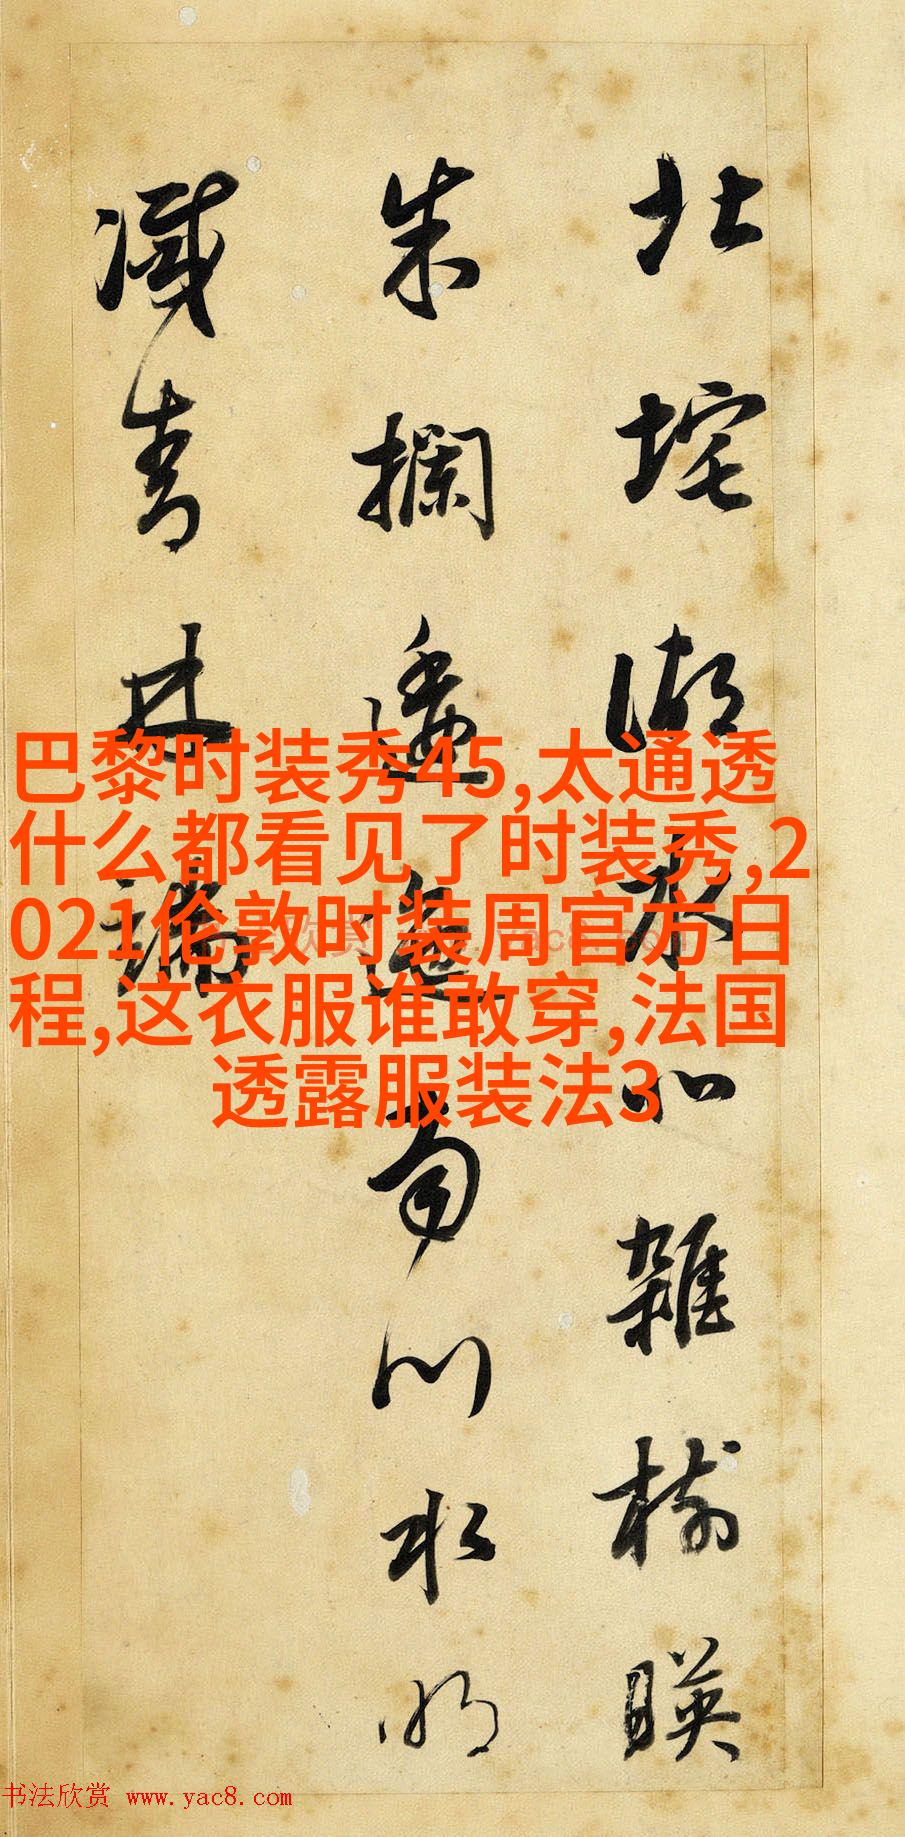 北垞湖水北雜樹暎
朱欄逶迤南川水明
滅青林端
巴黎时装秀45,太通透
什么都看见了时装秀,2
021伦敦时装周官方日
程,这衣服谁敢穿,法国
透露服装法3
书法欣赏 www.yac8.com